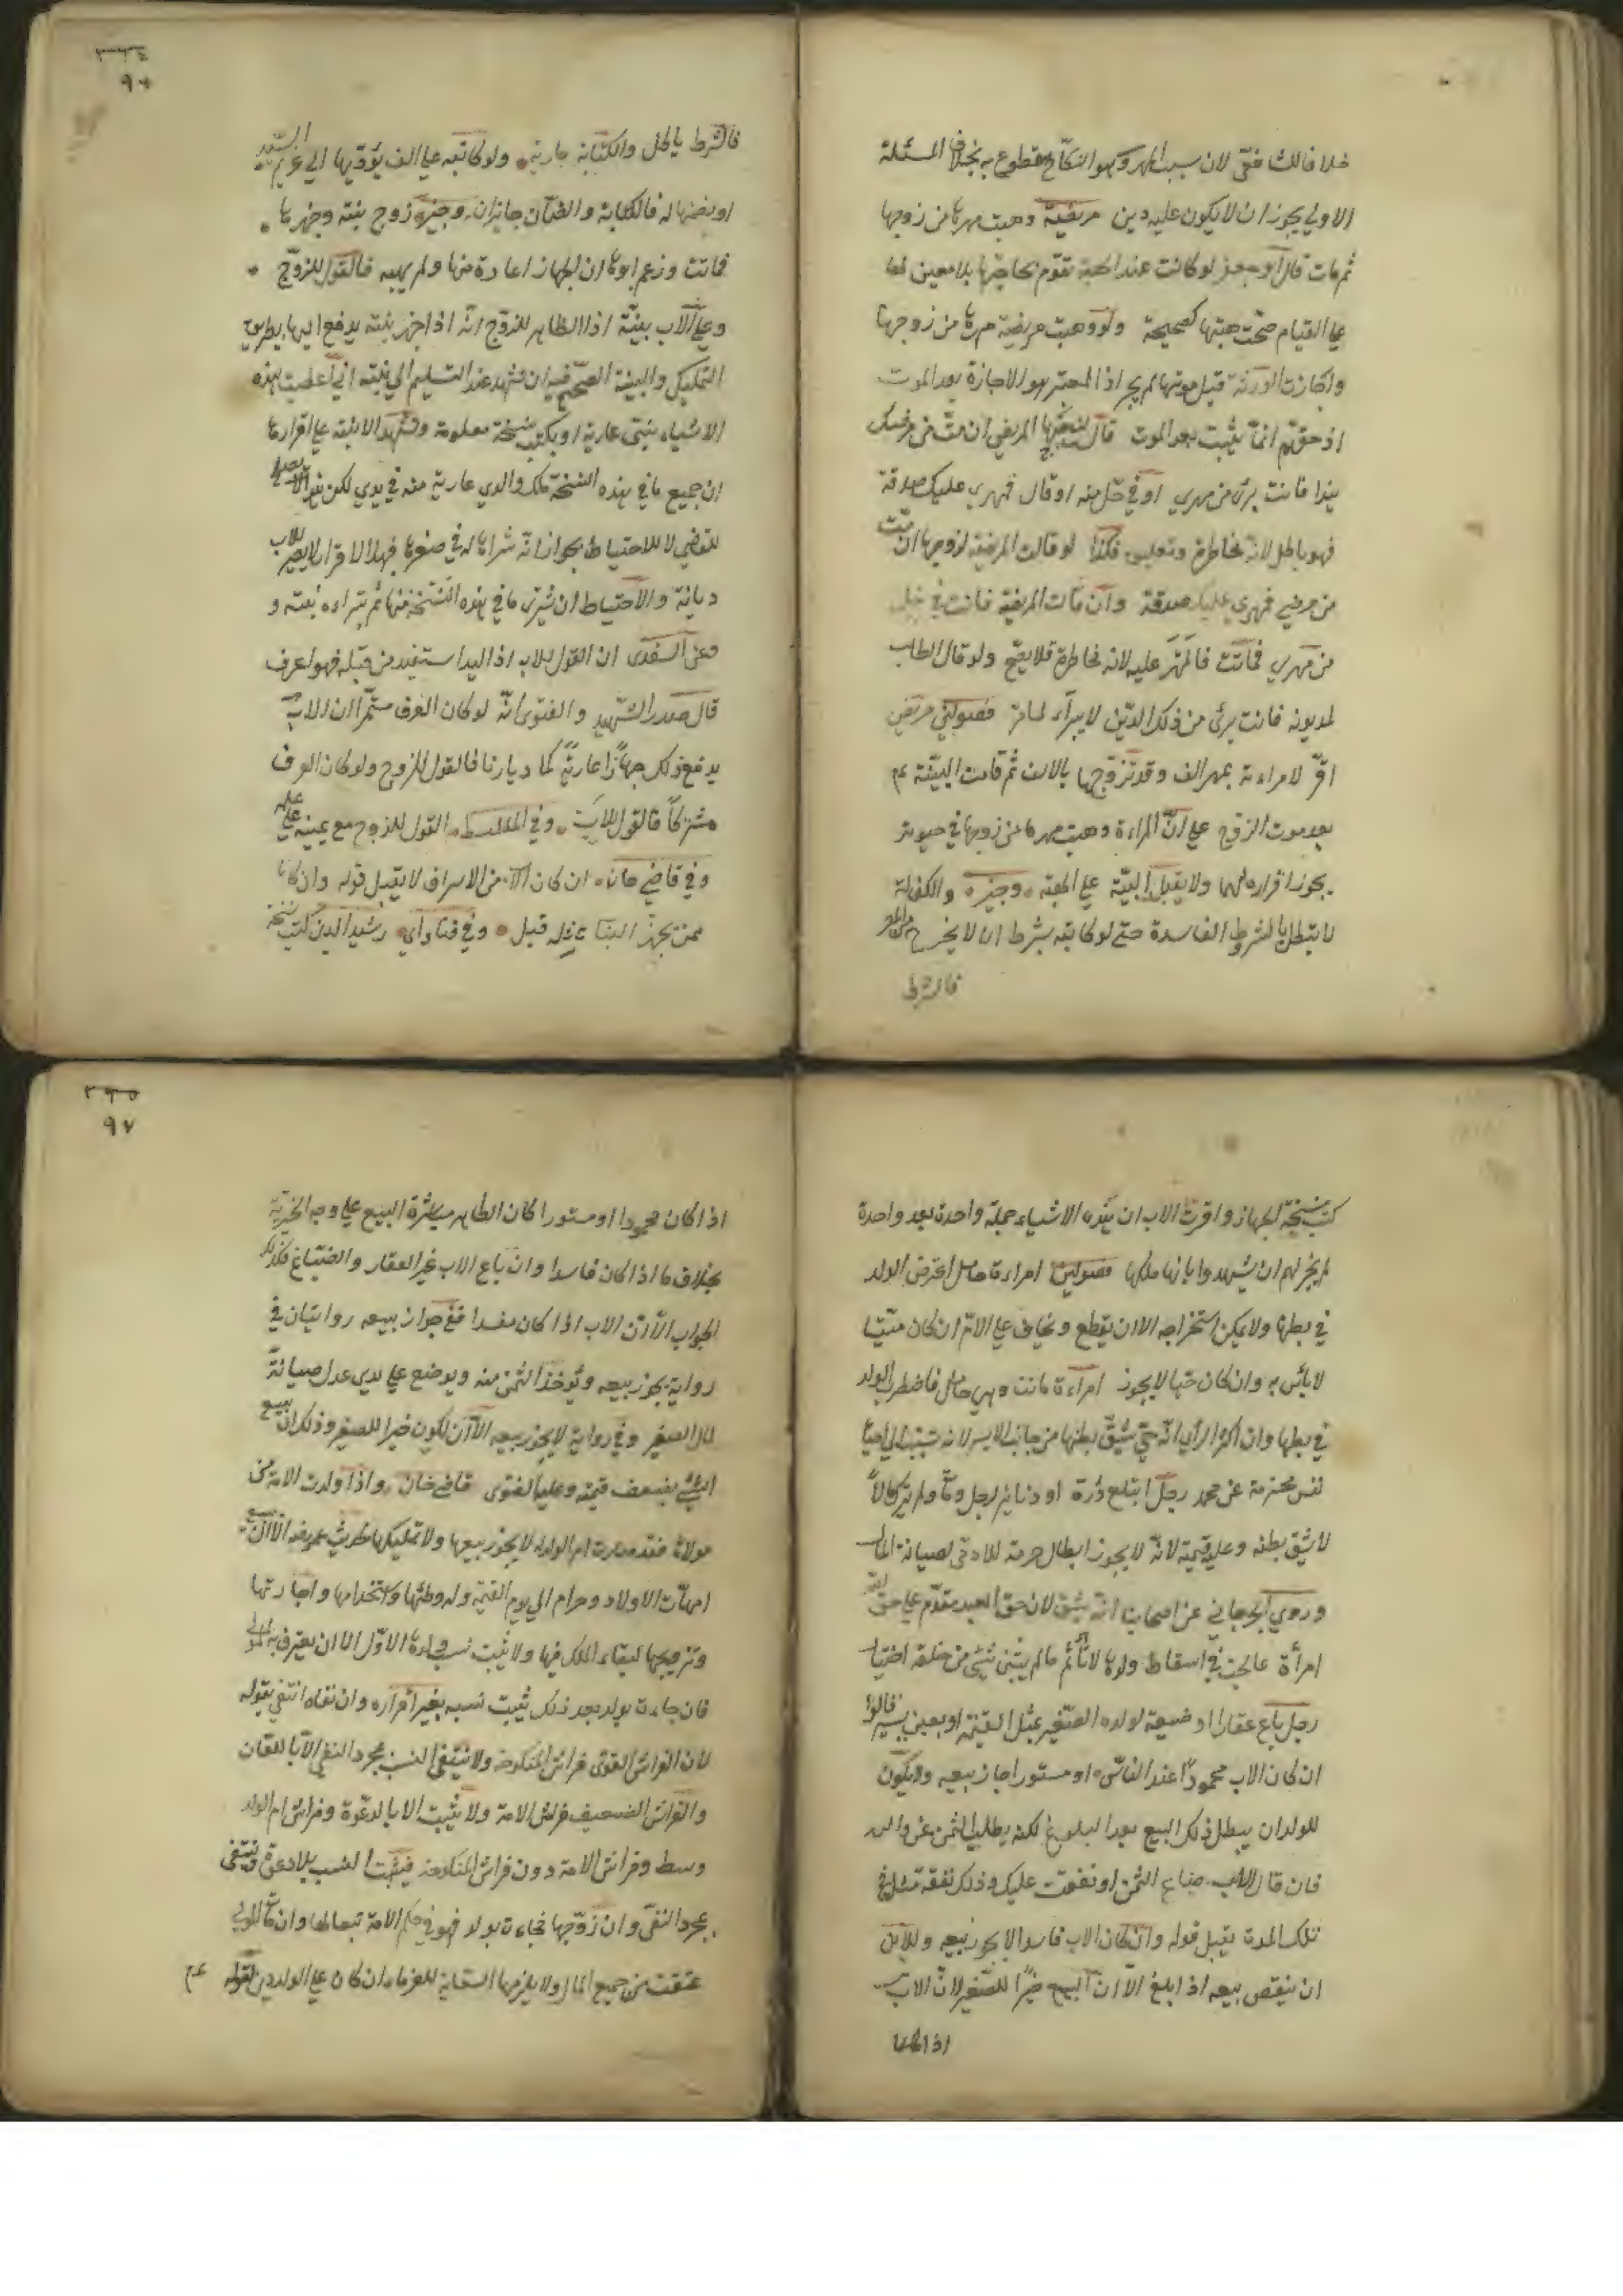 خلافا للشافعى لان سبب المهر وهو النكاح مقطوع به بخلاف المسئلة
الاولى يجوز ان لا يكون عليه دين مريضة وهبت مهرها من زوجها
ثم مات قال ابو جعفر لو كانت عند الهبة تقوم بحاجتها بلا معين لها
على القيام صحّت هبتها كصحيحة ولو وهبت مريضة مهرها من زوجها
واجازت الورثة قبل موتها لم يجز اذ المعتبر هو الاجازة بعد الموت
اذ حقهم انما يثبت بعد الموت قال المريض ان متّ من مرضك
هذا فانت برئ من مهري او في حل منه او قال فمهري عليك صدقة
فهو باطل لانه مخاطرة وتعليق فكذا لو قالت المريضة لزوجها ان متّ
من مرضي فمهري عليك صدقة وان ماتت المريضة فانت في حل
من مهري فماتت فالمهر عليه لانه مخاطرة فلا يصح ولو قال الطالب
لمديونه فانت برئ من ذلك الدين لا يبرأ لمامرّ فصولين مريض
اقرّ لامراءته بمهر الف وقد تزوجها بالالف ثم قامت البينة
بعد موت الزوج على انّ المراءة وهبت مهرها من زوجها في حيوته
يجوز اقراره لهما ولا يقبل البينة على الهبة وجيزه والكفالة
لا تبطل بالشروط الفاسدة حتى لو كاتبه بشرط ان لا يخرج من المصر
فالشرط
٣٦٤
٩٦
فالشرط باطل والكتابة جائزة ولو كاتبه على الف يؤدّيها الى غريم السيد
او يضمنها له فالكتابة والضمان جايزان وجيزه زوج بنته وجهزها
فماتت وزعم ابوها ان الجهاز اعارة منها ولم يهبه فالقول للزوج
وعلى الاب بيّنة اذ الظاهر للزوج انه اذا جهز بنته يدفع اليها بطريق
التمليك والبينة الصحيح فيه ان تشهد عند التسليم الى بنته اني اعطيت هذه
الاشياء بنتي عارية او يكتب نسخة معلومة وتشهد الابنة على اقرارها
ان جميع ما في هذه النسخة ملك والدي عارية منه في يدي لكن هذا يصلح
للقضي لا للاحتياط بجواز انّه شراها له في صغرها فبهذا الاقرار لا يصير للاب
ديانة والاحتياط ان يشتري ما في هذه النسخة منها ثم تبراءه بنته و
وعن السغدى ان القول للاب اذ اليد استفيد من قبله فهو اعرف
قال صدر الشهيد والفتوى انّه لو كان العرف مستمّرا ان الاب
يدفع ذلك جهازا عارية كما ديارنا فالقول للزوج ولو كان العرف
مشتركا فالقول للاب وفي الملتقط القول للزوج مع يمينه على علمه
وفي قاضي خان ان كان الاب من الاشراف لا يقبل قوله وان كان
ممن يجهز البنات بمثله قبل وفي فتاواي رشيد الدين كتب نسخة
كتب نسخة الجهاز واقرت الاب ان هذه الاشياء جملة واحدة بعد واحدة
لم يجز لهم ان يشهدوا بانها ملكها فصولين امراءة حامل اعترض الولد
في بطنها ولا يمكن استخراجه الا ان يقطع ويخاف على الامّ ان كان ميّتا
لا بأس به وان كان حيّا لا يجوز امراءة ماتت وهي حامل فاضطرب الولد
في بطنها وان اكثر الرأي انّه حيّ يشقّ بطنها من جانب الايسر لانه تسبّب الى احياء
نفس محترمة عن محمد رجل ابتلع درّة او دنانير لرجل ومات ولم يترك مالاً
لا يشق بطنه وعليه قيمته لانّه لا يجوز ابطال حرمة للادمى لصيانة المال
وروي الجرجاني عن اصحابنا انّه يشق لان حق العبد مقدّم على حق الله
امرأة عالجت في اسقاط ولدها لا تأثم ما لم يتبين شئ من خلقه اختيار
رجل باع عقارا او ضيعة لولده الصغير بمثل القيمة او بغبن يسير قالوا
ان كان الاب محموداً عند الناس او مستورا جاز بيعه ولا يكون
للولد ان يبطل ذلك البيع بعد البلوغ لكنه يطلب الثمن عن والده
فان قال الاب ضاع الثمن او نفقت عليك وذلك نفقة مثله في
تلك المدة يقبل قوله وان كان الاب فاسدا لا يجوز بيعه وللابن
ان ينقض بيعه اذا بلغ الّا ان البيع خيراً للصغير لانّ الاب
اذا كان
٣٦٥
٩٧
اذا كان محمودا او مستورا كان الظاهر مباشرة البيع على وجه الخيرية
بخلاف ما اذا كان فاسدا وان باع الاب غير العقار والضياع فكذلك
الجواب الّا انّ الاب اذا كان مفسدا ففي جواز بيعه روايتان في
رواية يجوز بيعه ويؤخذ الثمن منه ويوضع على يدي عدل صيانةً
لمال الصغير وفي رواية لا يجوز بيعه الّا ان يكون خيرا للصغير وذلك ان يبيع
الشئ بضعف قيمته وعليه الفتوى قاضي خان واذا ولدت الامة من
مولاها فقد صارت ام الولد له لا يجوز بيعها ولا تمليكها
امهات الاولاد وحرام الى يوم القيمة وله وطئها واستخدامها واجارتها
وتزويجها لبقاء الملك فيها ولا يثبت نسب ولدها الاوّل الا ان يعترف به المولى
فان جاءت بولد بعد ذلك يثبت نسبه بغير اقراره وان نفاه انتفى بقوله
لان الفراش القوى فراش المنكوحة ولا ينتفى النسب بمجرد النفى الّا باللعان
والفراش الضعيف فراش الامة ولا يثبت الا بالدعوة وفراش ام الولد
وسط وفراش الامة دون فراش المنكوحة فيثبت النسب بلا دعوة وينتفى
بمجرد النفى وان زوّجها فجاءت بولد فهو في حكم الامة تبعا لها وان مات المولى
عتقت من جميع المال ولا يلزمها السعاية للغرماء ان كان على الولد دين لقوله عم